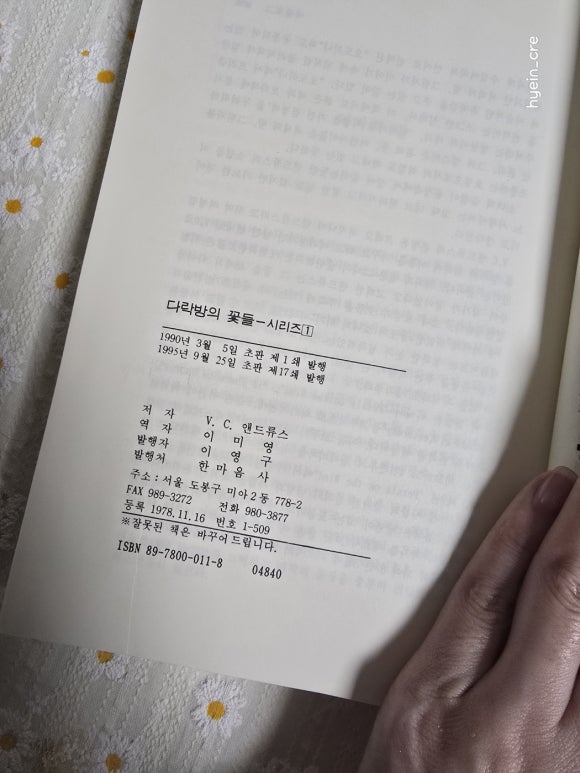 hyein_cre
다락방의 꽃들-시리즈1
1990년 3월 5일 초판 제1쇄 발행
1995년 9월 25일 초판 제17쇄 발행
저 자 V. C. 앤드류스
역 자 이 미 영
발행자 이 영 구
발행처 한 마 음 사
주소:서울 도봉구 미아2동 778-2
FAX 989-3272 전화 980-3877
등록 1978.11.16 번호 1-509
※잘못된 책은 바꾸어드립니다.
ISBN 89-7800-011-8 04840